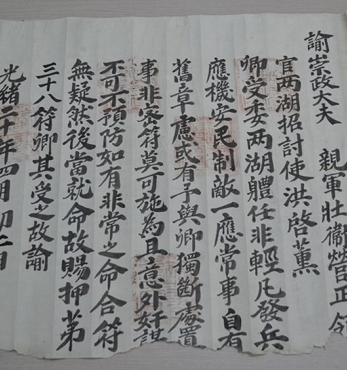 諭崇政大夫 親軍壯衛營正領
官两湖招討使洪啓薰
卿受委两湖體任非輕凡發兵
應機安民制敵一應常事自有
舊章慮或有予與卿獨斷處置
事非密符莫可施為且意外奸謀
不可不預防如有非常之命合符
無疑然後當就命故賜押第
三十八符卿其受之故諭
光緒二十年四月初二日